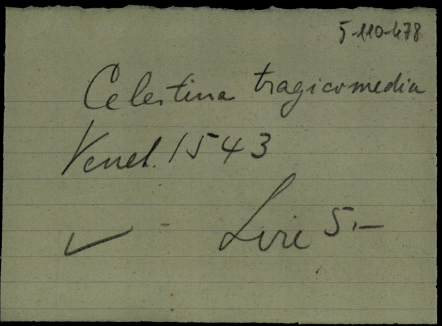 5-110-478
Celestina tragicomedia
Venet. 1543
✓ Lire 5.–